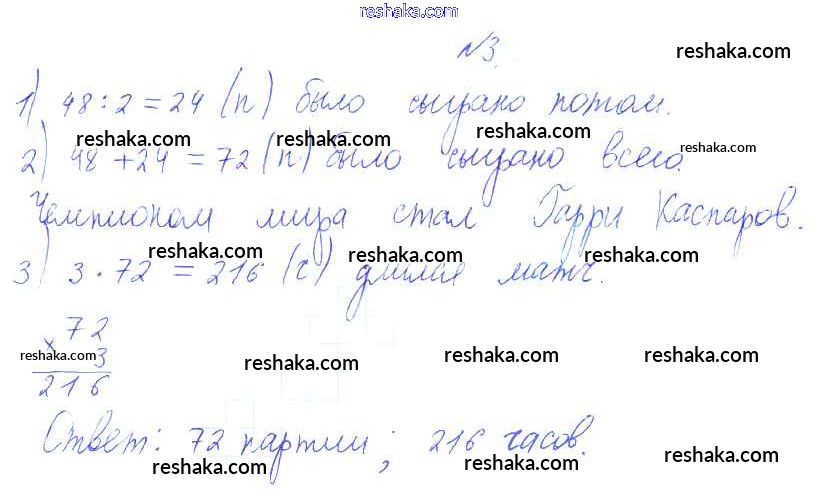 reshaka.com
№3. reshaka.com
1) 48:2=24 (п) было сыграно потом.
reshaka.com reshaka.com reshaka.com reshaka.com
2) 48+24=72 (п) было сыграно всего.
Чемпионом мира стал Гарри Каспаров.
reshaka.com reshaka.com reshaka.com
3) 3·72=216 (с) длился матч.
72
reshaka.com × 3 reshaka.com reshaka.com reshaka.com
216
Ответ: 72 партии; 216 часов.
reshaka.com reshaka.com reshaka.com